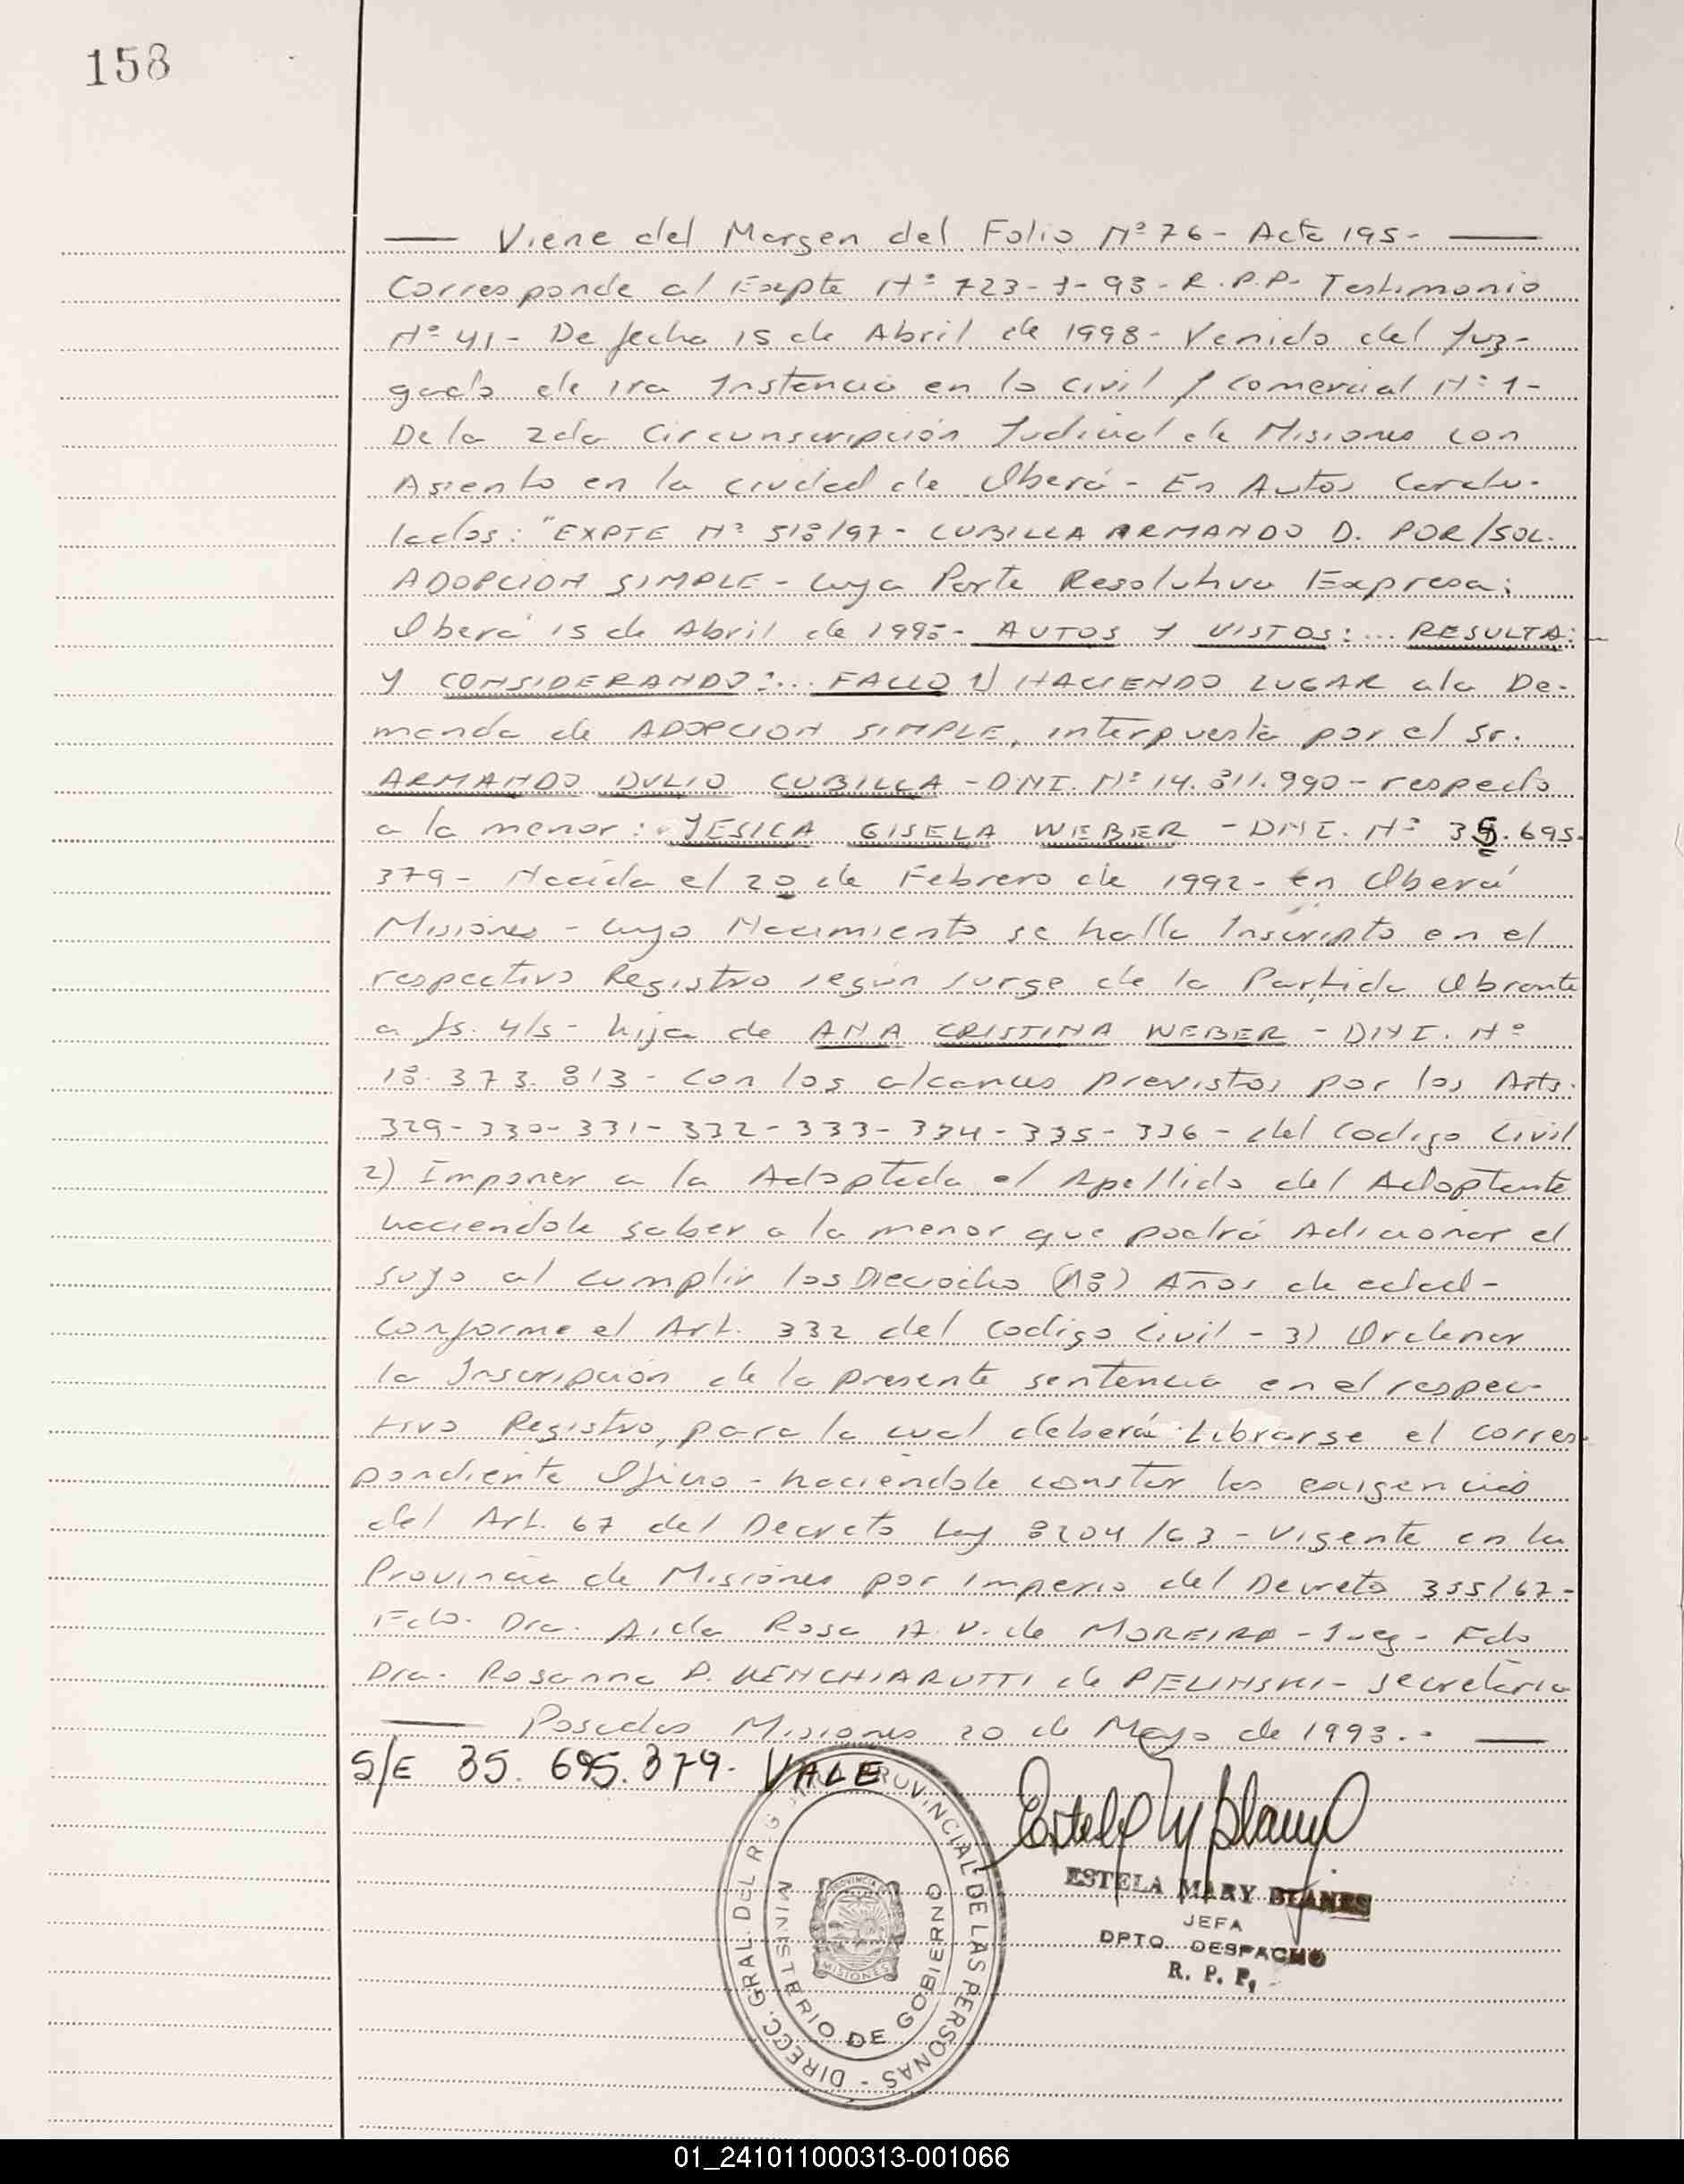 158
— Viene del Margen del Folio Nº 76 - Acta 195 - —
Corresponde al Expte Nº 723-J-98 - R.P.P. Testimonio
Nº 41 - De fecha 15 de Abril de 1998 - Venido del Juz-
gado de 1ra Instancia en lo Civil y Comercial Nº 1 -
De la 2da Circunscripción Judicial de Misiones con
Asiento en la ciudad de Oberá - En Autos Caratu-
lados: "EXPTE Nº 518/97 - CUBILLA ARMANDO D. POR/SOL.
ADOPCION SIMPLE - cuya Parte Resolutiva Expresa:
Oberá 15 de Abril de 1998 - AUTOS Y VISTOS: ... RESULTA:
Y CONSIDERANDO: ... FALLO 1) HACIENDO LUGAR a la De-
manda de ADOPCION SIMPLE, interpuesta por el Sr.
ARMANDO DULIO CUBILLA - DNI. Nº 14.811.990 - respecto
a la menor: YESICA GISELA WEBER - DNI. Nº 35.695.
379 - Nacida el 20 de Febrero de 1992 - en Oberá
Misiones - cuyo Nacimiento se halla Inscripto en el
respectivo Registro según surge de la Partida Obrante
a fs. 4/5 - hija de ANA CRISTINA WEBER - DNI. Nº
18.373.813 - con los alcances previstos por los Arts.
329-330-331-332-333-334-335-336 - del Codigo Civil
2) Imponer a la Adoptada el Apellido del Adoptante
haciendole saber a la menor que podrá Adicionar el
suyo al cumplir los Dieciocho (18) Años de edad -
conforme el Art. 332 del Codigo Civil - 3) Ordenar
la Inscripción de la presente sentencia en el respec-
tivo Registro, para lo cual deberá Librarse el corres-
pondiente Oficio - haciendole constar las exigencias
del Art. 67 del Decreto Ley 8204/63 - Vigente en la
Provincia de Misiones por Imperio del Decreto 355/67 -
Fdo. Dra. Aida Rosa A. V. de MOREIRA - Juez - Fdo
Dra. Rosanna P. VENCHIARUTTI de PELINSKI - Secretaria
— Posadas Misiones 20 de Mayo de 1998.- —
S/E 35.695.379. VALE
DIRECC. GRAL. DEL REG. PROVINCIAL DE LAS PERSONAS -
MINISTERIO DE GOBIERNO
PROVINCIA DE
MISIONES
ESTELA MARY BLANES
JEFA
DPTO. DESPACHO
R. P. P.
01_241011000313-001066